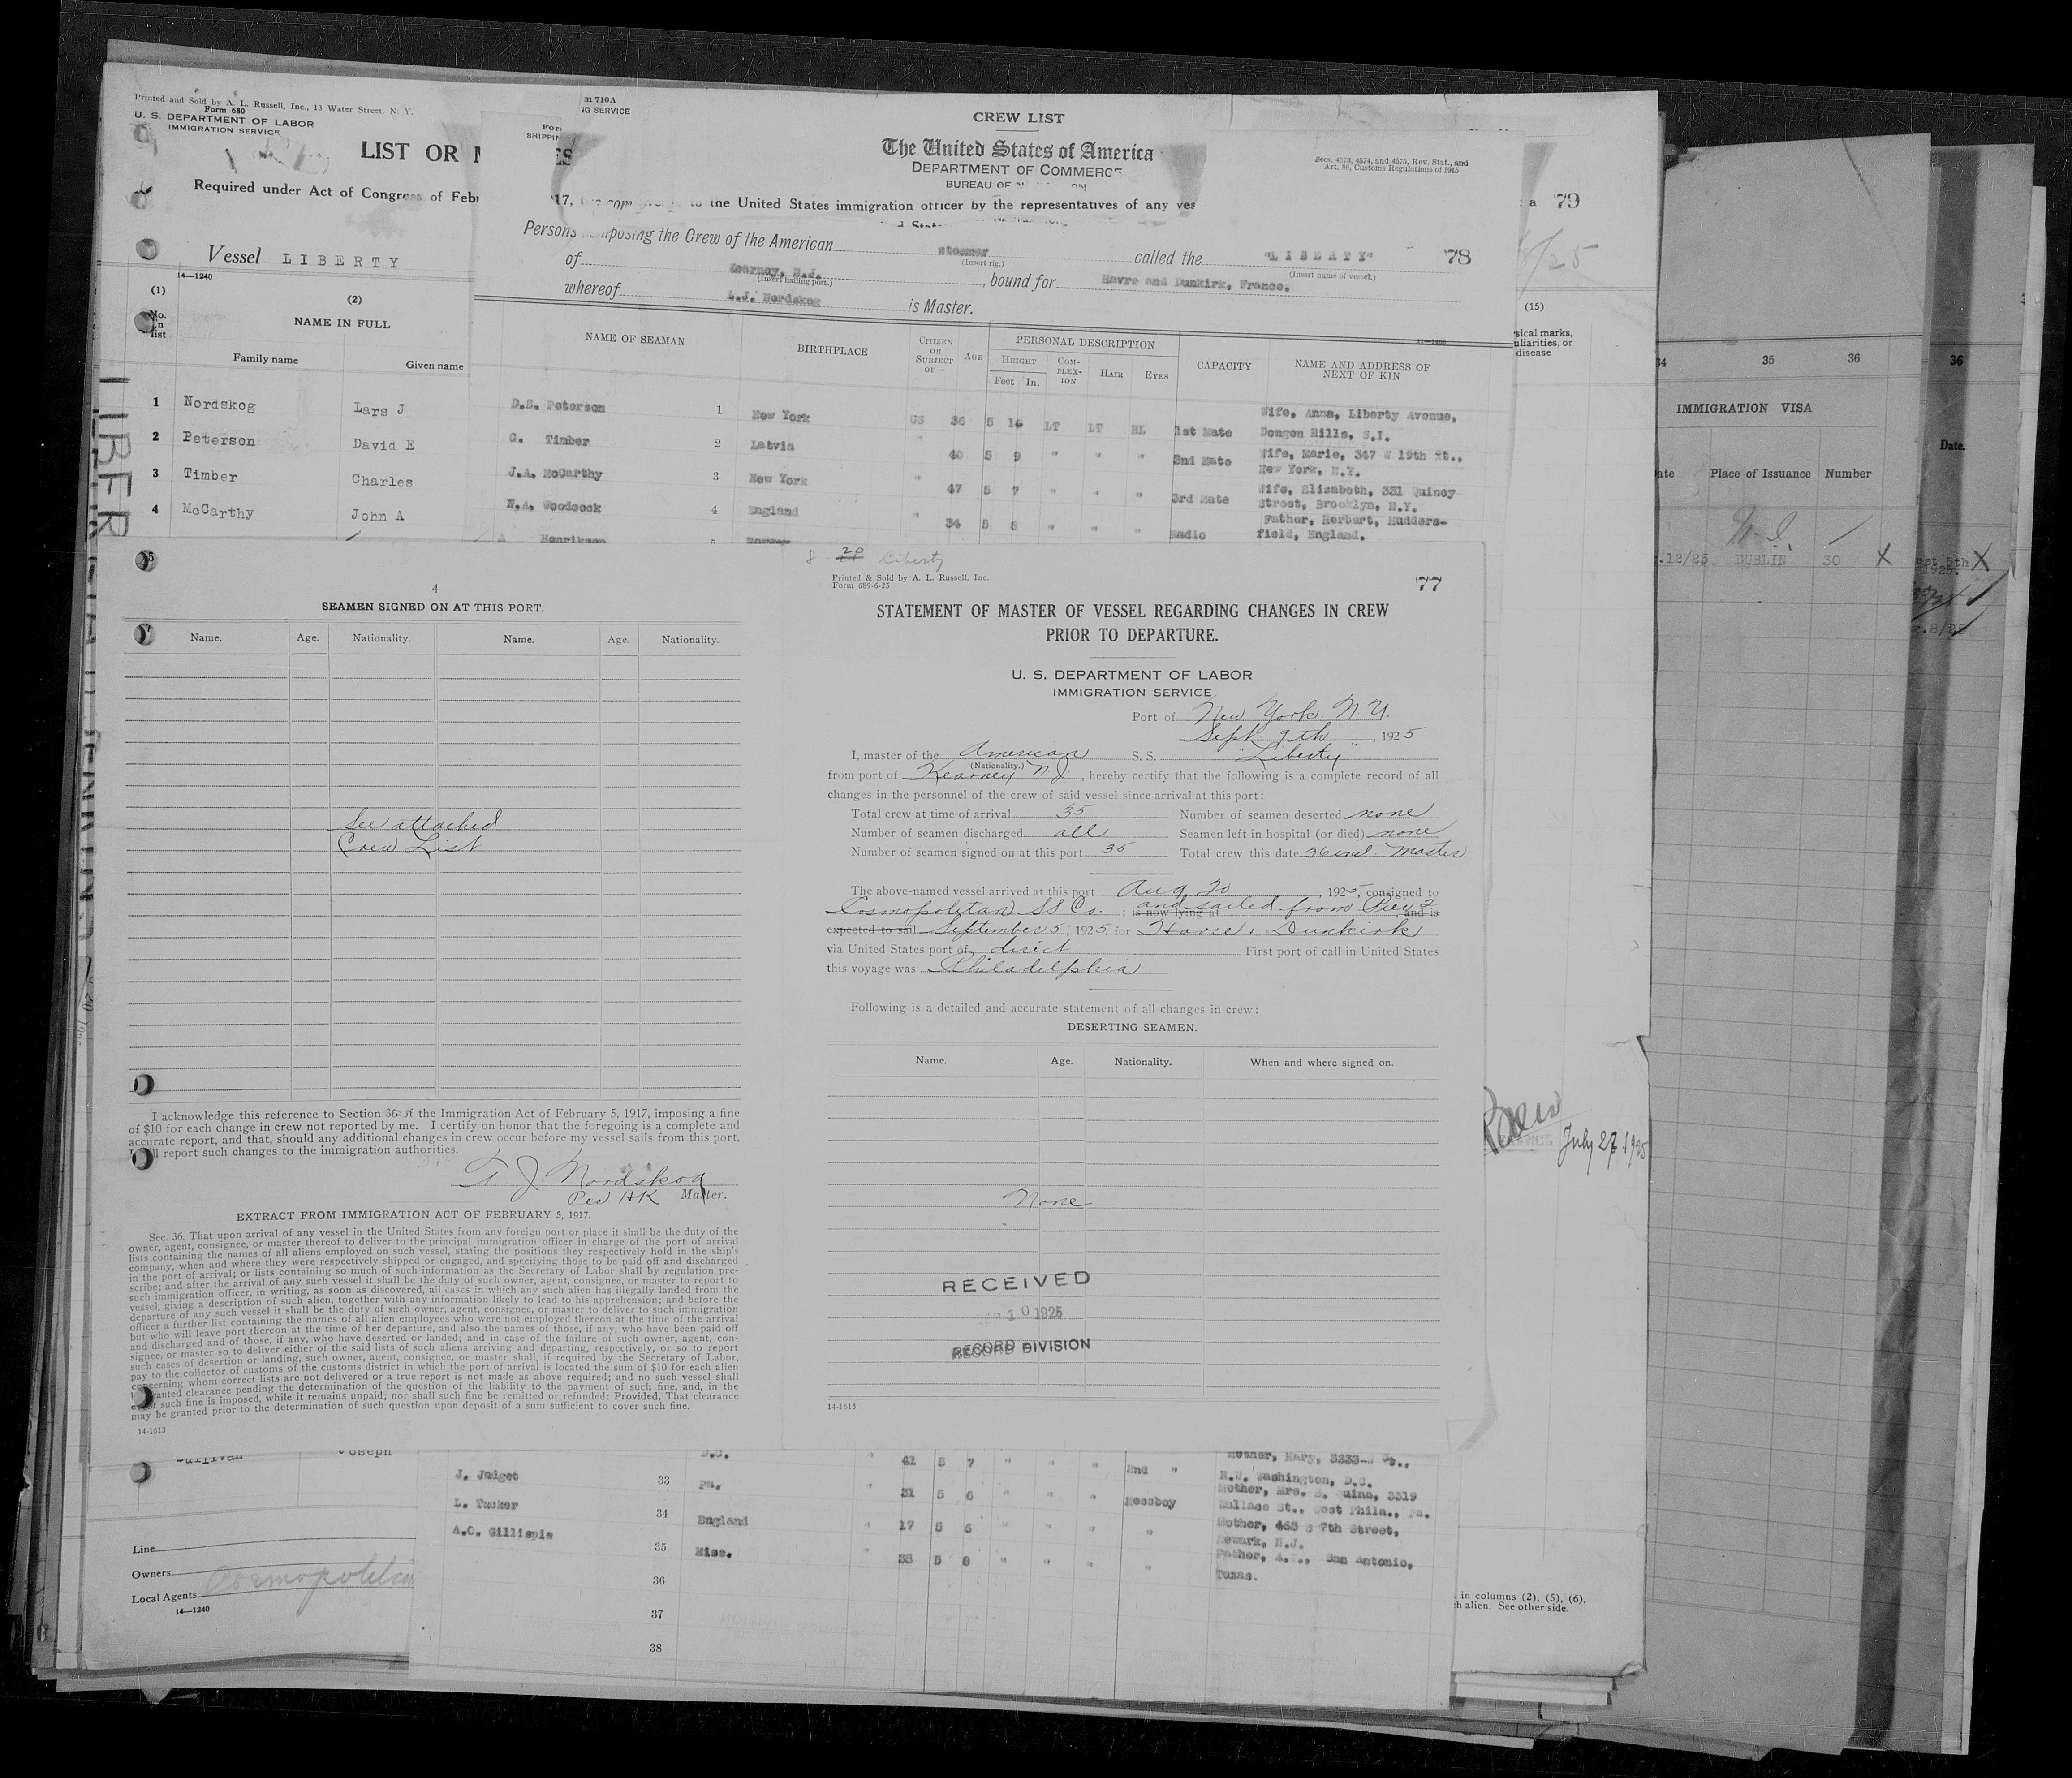 Printed and Sold by A. L. Russell, Inc., 13 Water Street, N. Y.
Form 680
U. S. DEPARTMENT OF LABOR
IMMIGRATION SERVICE
LIST OR
Required under Act of Congress of Feb
Vessel LIBERTY
14—1240
(1)
(2)
No. in list
NAME IN FULL
Family name
Given name
1 Nordskog Lars J
2 Peterson David E
3 Timber Charles
4 McCarthy John A
m 710A
NG SERVICE
CREW LIST
The United States of America
DEPARTMENT OF COMMERCE
BUREAU OF
Secs. 4573, 4574, and 4575, Rev. Stat., and
Art. 86, Customs Regulations of 1915
'17, the United States immigration officer by the representatives of any ves
79
Persons composing the Crew of the American steamer called the "LIBERTY" 78
(Insert rig.)
(Insert name of vessel.)
of Kearney, N.J., bound for Havre and Dunkirk, France.
(Insert hailing port.)
whereof L.J. Nordskog is Master.
NAME OF SEAMAN
BIRTHPLACE
CITIZEN OR SUBJECT OF—
AGE
PERSONAL DESCRIPTION
HEIGHT
Feet In.
COMPLEXION
HAIR
EYES
CAPACITY
NAME AND ADDRESS OF NEXT OF KIN
D.E. Peterson 1 New York US 36 5 10 LT LT BL 1st Mate Wife, Anna, Liberty Avenue, Dongon Hills, S.I.
C. Timber 2 Latvia " 40 5 9 " " " 2nd Mate Wife, Marie, 347 W 19th St., New York, N.Y.
J.A. McCarthy 3 New York " 47 5 7 " " " 3rd Mate Wife, Elizabeth, 331 Quincy Street, Brooklyn, N.Y.
N.A. Woodcock 4 England " 34 5 8 " " " Radio Father, Herbert, Hudders-field, England.
Henriksen 5
(15)
sical marks,
uliarities, or
disease
34 35 36
36
IMMIGRATION VISA
Date.
ate Place of Issuance Number
.12/25 DUBLIN 30 X
4
SEAMEN SIGNED ON AT THIS PORT.
Name. Age. Nationality. Name. Age. Nationality.
See attached
Crew List
I acknowledge this reference to Section 36 of the Immigration Act of February 5, 1917, imposing a fine
of $10 for each change in crew not reported by me. I certify on honor that the foregoing is a complete and
accurate report, and that, should any additional changes in crew occur before my vessel sails from this port,
I will report such changes to the immigration authorities.
J Nordskog
Per HK Master.
EXTRACT FROM IMMIGRATION ACT OF FEBRUARY 5, 1917.
Sec. 36. That upon arrival of any vessel in the United States from any foreign port or place it shall be the duty of the
owner, agent, consignee, or master thereof to deliver to the principal immigration officer in charge of the port of arrival
lists containing the names of all aliens employed on such vessel, stating the positions they respectively hold in the ship's
company, when and where they were respectively shipped or engaged, and specifying those to be paid off and discharged
in the port of arrival; or lists containing so much of such information as the Secretary of Labor shall by regulation pre-
scribe; and after the arrival of any such vessel it shall be the duty of such owner, agent, consignee, or master to report to
such immigration officer, in writing, as soon as discovered, all cases in which any such alien has illegally landed from the
vessel, giving a description of such alien, together with any information likely to lead to his apprehension; and before the
departure of any such vessel it shall be the duty of such owner, agent, consignee, or master to deliver to such immigration
officer a further list containing the names of all alien employees who were not employed thereon at the time of the arrival
but who will leave port thereon at the time of her departure, and also the names of those, if any, who have been paid off
and discharged and of those, if any, who have deserted or landed; and in case of the failure of such owner, agent, con-
signee, or master so to deliver either of the said lists of such aliens arriving and departing, respectively, or so to report
such cases of desertion or landing, such owner, agent, consignee, or master shall, if required by the Secretary of Labor,
pay to the collector of customs of the customs district in which the port of arrival is located the sum of $10 for each alien
concerning whom correct lists are not delivered or a true report is not made as above required; and no such vessel shall
be granted clearance pending the determination of the question of the liability to the payment of such fine, and, in the
event such fine is imposed, while it remains unpaid; nor shall such fine be remitted or refunded: Provided, That clearance
may be granted prior to the determination of such question upon deposit of a sum sufficient to cover such fine.
14-1613
Liberty
Printed & Sold by A. L. Russell, Inc.
Form 689-6-25
77
STATEMENT OF MASTER OF VESSEL REGARDING CHANGES IN CREW
PRIOR TO DEPARTURE.
U. S. DEPARTMENT OF LABOR
IMMIGRATION SERVICE
Port of New York. N Y.
Sept 9th, 1925
I, master of the American S. S. "Liberty"
(Nationality.)
from port of Kearney N J, hereby certify that the following is a complete record of all
changes in the personnel of the crew of said vessel since arrival at this port:
Total crew at time of arrival 35 Number of seamen deserted none
Number of seamen discharged all Seamen left in hospital (or died) none
Number of seamen signed on at this port 35 Total crew this date 36 incl. Master
The above-named vessel arrived at this port Aug 20, 1925, consigned to
Cosmopolitan SS Co.; is now lying at and sailed from Pier 2 and is
expected to sail September 5, 1925, for Havre, Dunkirk
via United States port of direct First port of call in United States
this voyage was Philadelphia
Following is a detailed and accurate statement of all changes in crew:
DESERTING SEAMEN.
Name. Age. Nationality. When and where signed on.
None
RECEIVED
10 1925
RECORD DIVISION
14-1613
July 27 1925
Joseph
41 5 7 " " " 2nd " Mother, Mary, N.W. Washington, D.C.
J. Judget 33 Pa. " 21 5 6 " " " Messboy Mother, Mrs. Quinn, 3319 Wallace St., West Phila., Pa.
L. Tucker 34 England " 17 5 5 " " " " Mother, 465 S 7th Street, Newark, N.J.
A.C. Gillispie 35 Miss. " 38 5 8 " " " " Father, San Antonio, Texas.
36
37
38
Line
Owners
Local Agents Cosmopolitan
14—1240
in columns (2), (5), (6),
h alien. See other side.